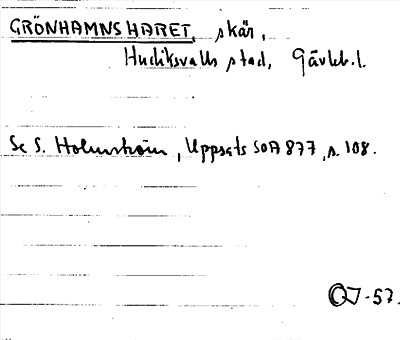 GRÖNHAMNSHARET, skär,
Hudiksvalls stad, Gävleb. l.
Se S. Holmström, Uppsats SOA 877, s. 108.
OJ-57.